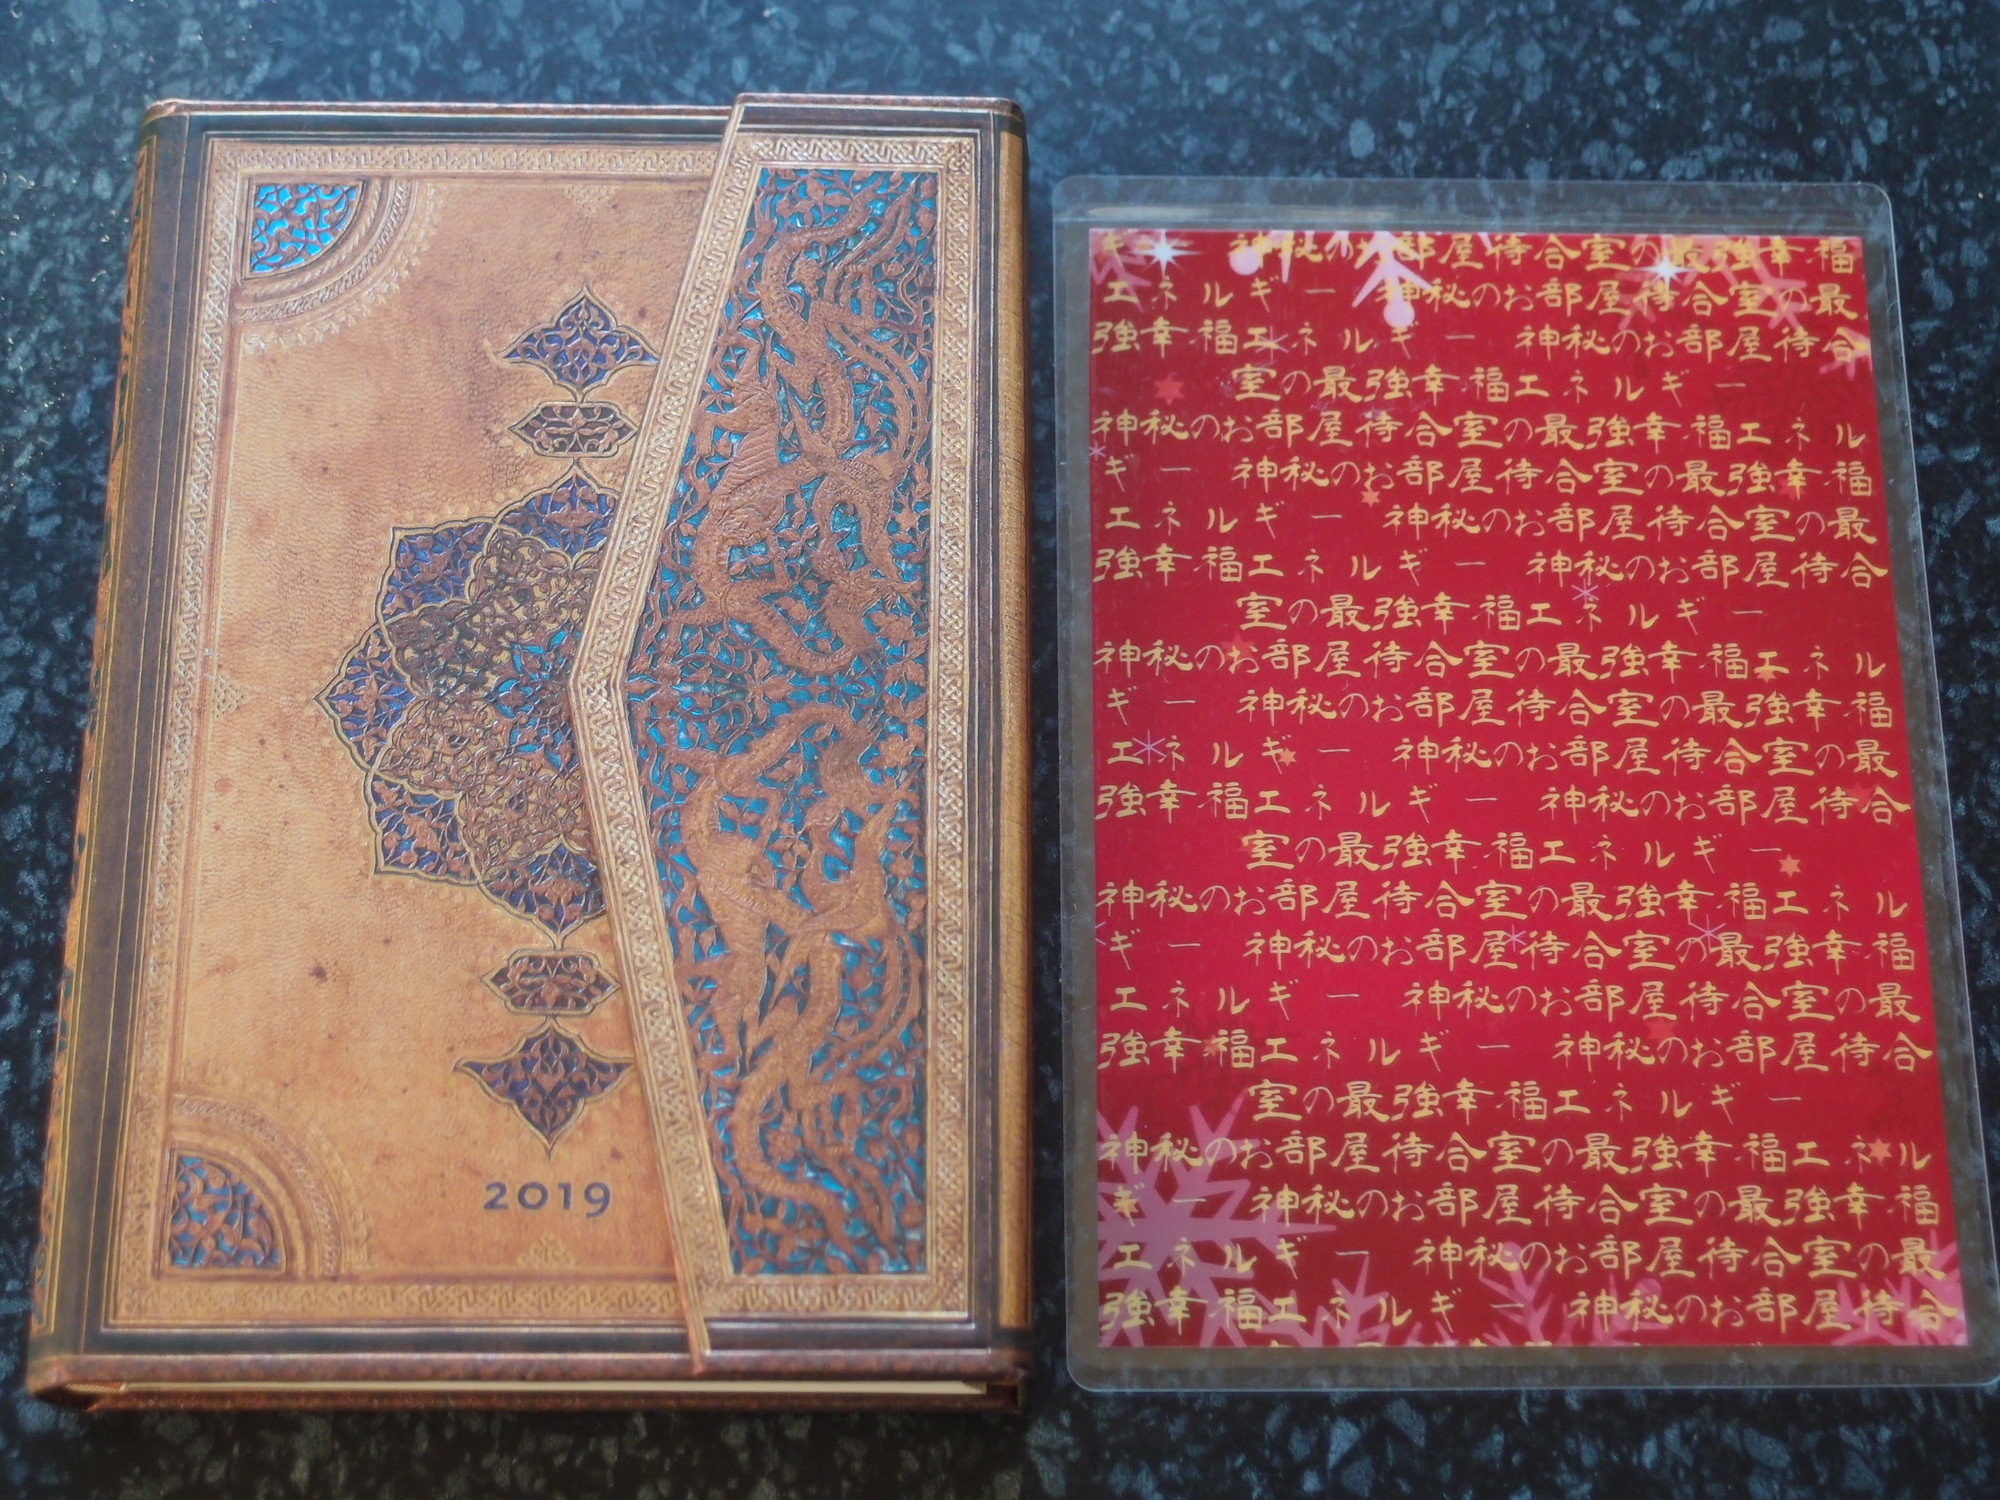 2019
ギー　神秘のお部屋待合室の最強幸福
エネルギー　神秘のお部屋待合室の最
強幸福エネルギー　神秘のお部屋待合
室の最強幸福エネルギー
神秘のお部屋待合室の最強幸福エネル
ギー　神秘のお部屋待合室の最強幸福
エネルギー　神秘のお部屋待合室の最
強幸福エネルギー　神秘のお部屋待合
室の最強幸福エネルギー
神秘のお部屋待合室の最強幸福エネル
ギー　神秘のお部屋待合室の最強幸福
エネルギー　神秘のお部屋待合室の最
強幸福エネルギー　神秘のお部屋待合
室の最強幸福エネルギー
神秘のお部屋待合室の最強幸福エネル
ギー　神秘のお部屋待合室の最強幸福
エネルギー　神秘のお部屋待合室の最
強幸福エネルギー　神秘のお部屋待合
室の最強幸福エネルギー
神秘のお部屋待合室の最強幸福エネル
ギー　神秘のお部屋待合室の最強幸福
エネルギー　神秘のお部屋待合室の最
強幸福エネルギー　神秘のお部屋待合